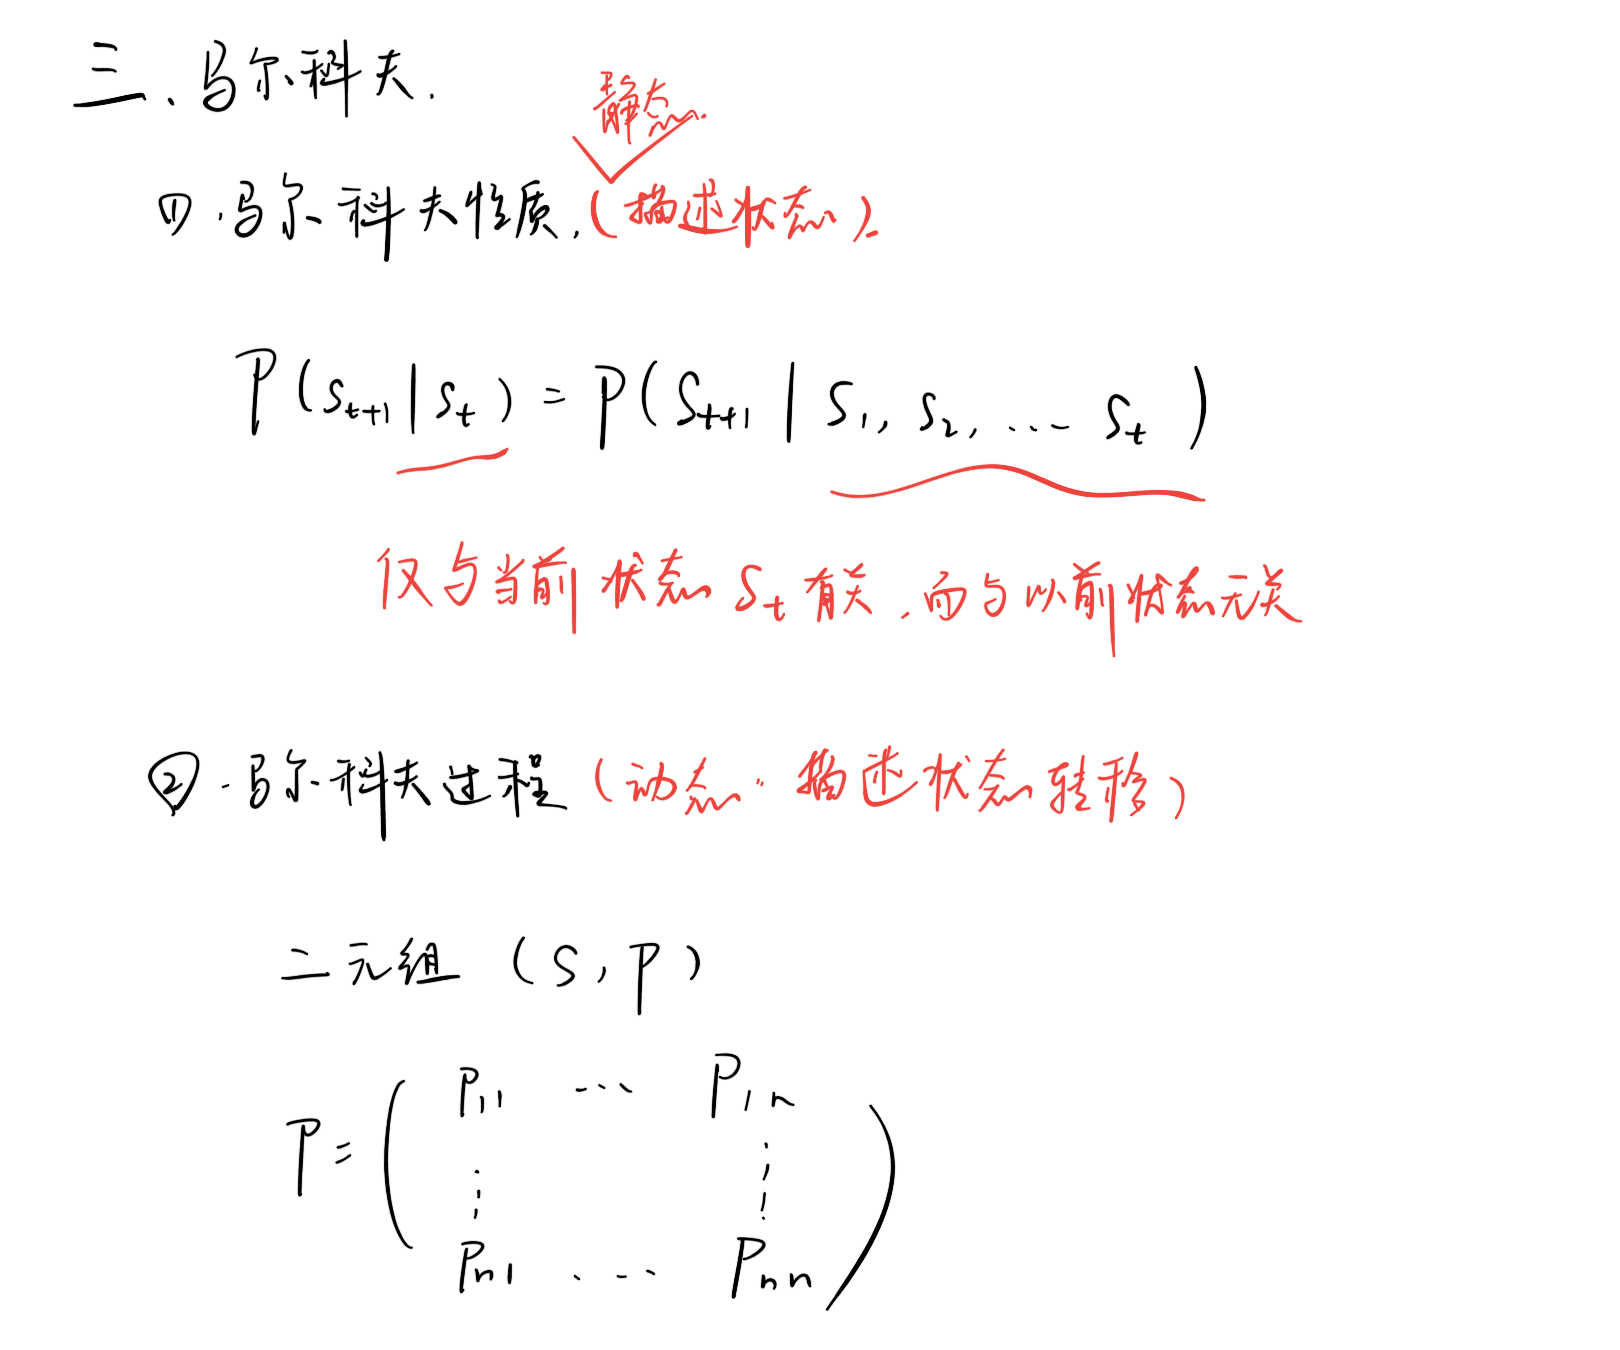 三、马尔科夫.
静态.
①.马尔科夫性质.(描述状态).
P(S_{t+1}|S_t) = P(S_{t+1}|S_1, S_2, ... S_t)
仅与当前状态S_t有关,而与以前状态无关
②.马尔科夫过程(动态.描述状态转移)
二元组 (S, P)
P_{11} ... P_{1n}
P = ( ⋮ ⋮ )
P_{n1} ... P_{nn}